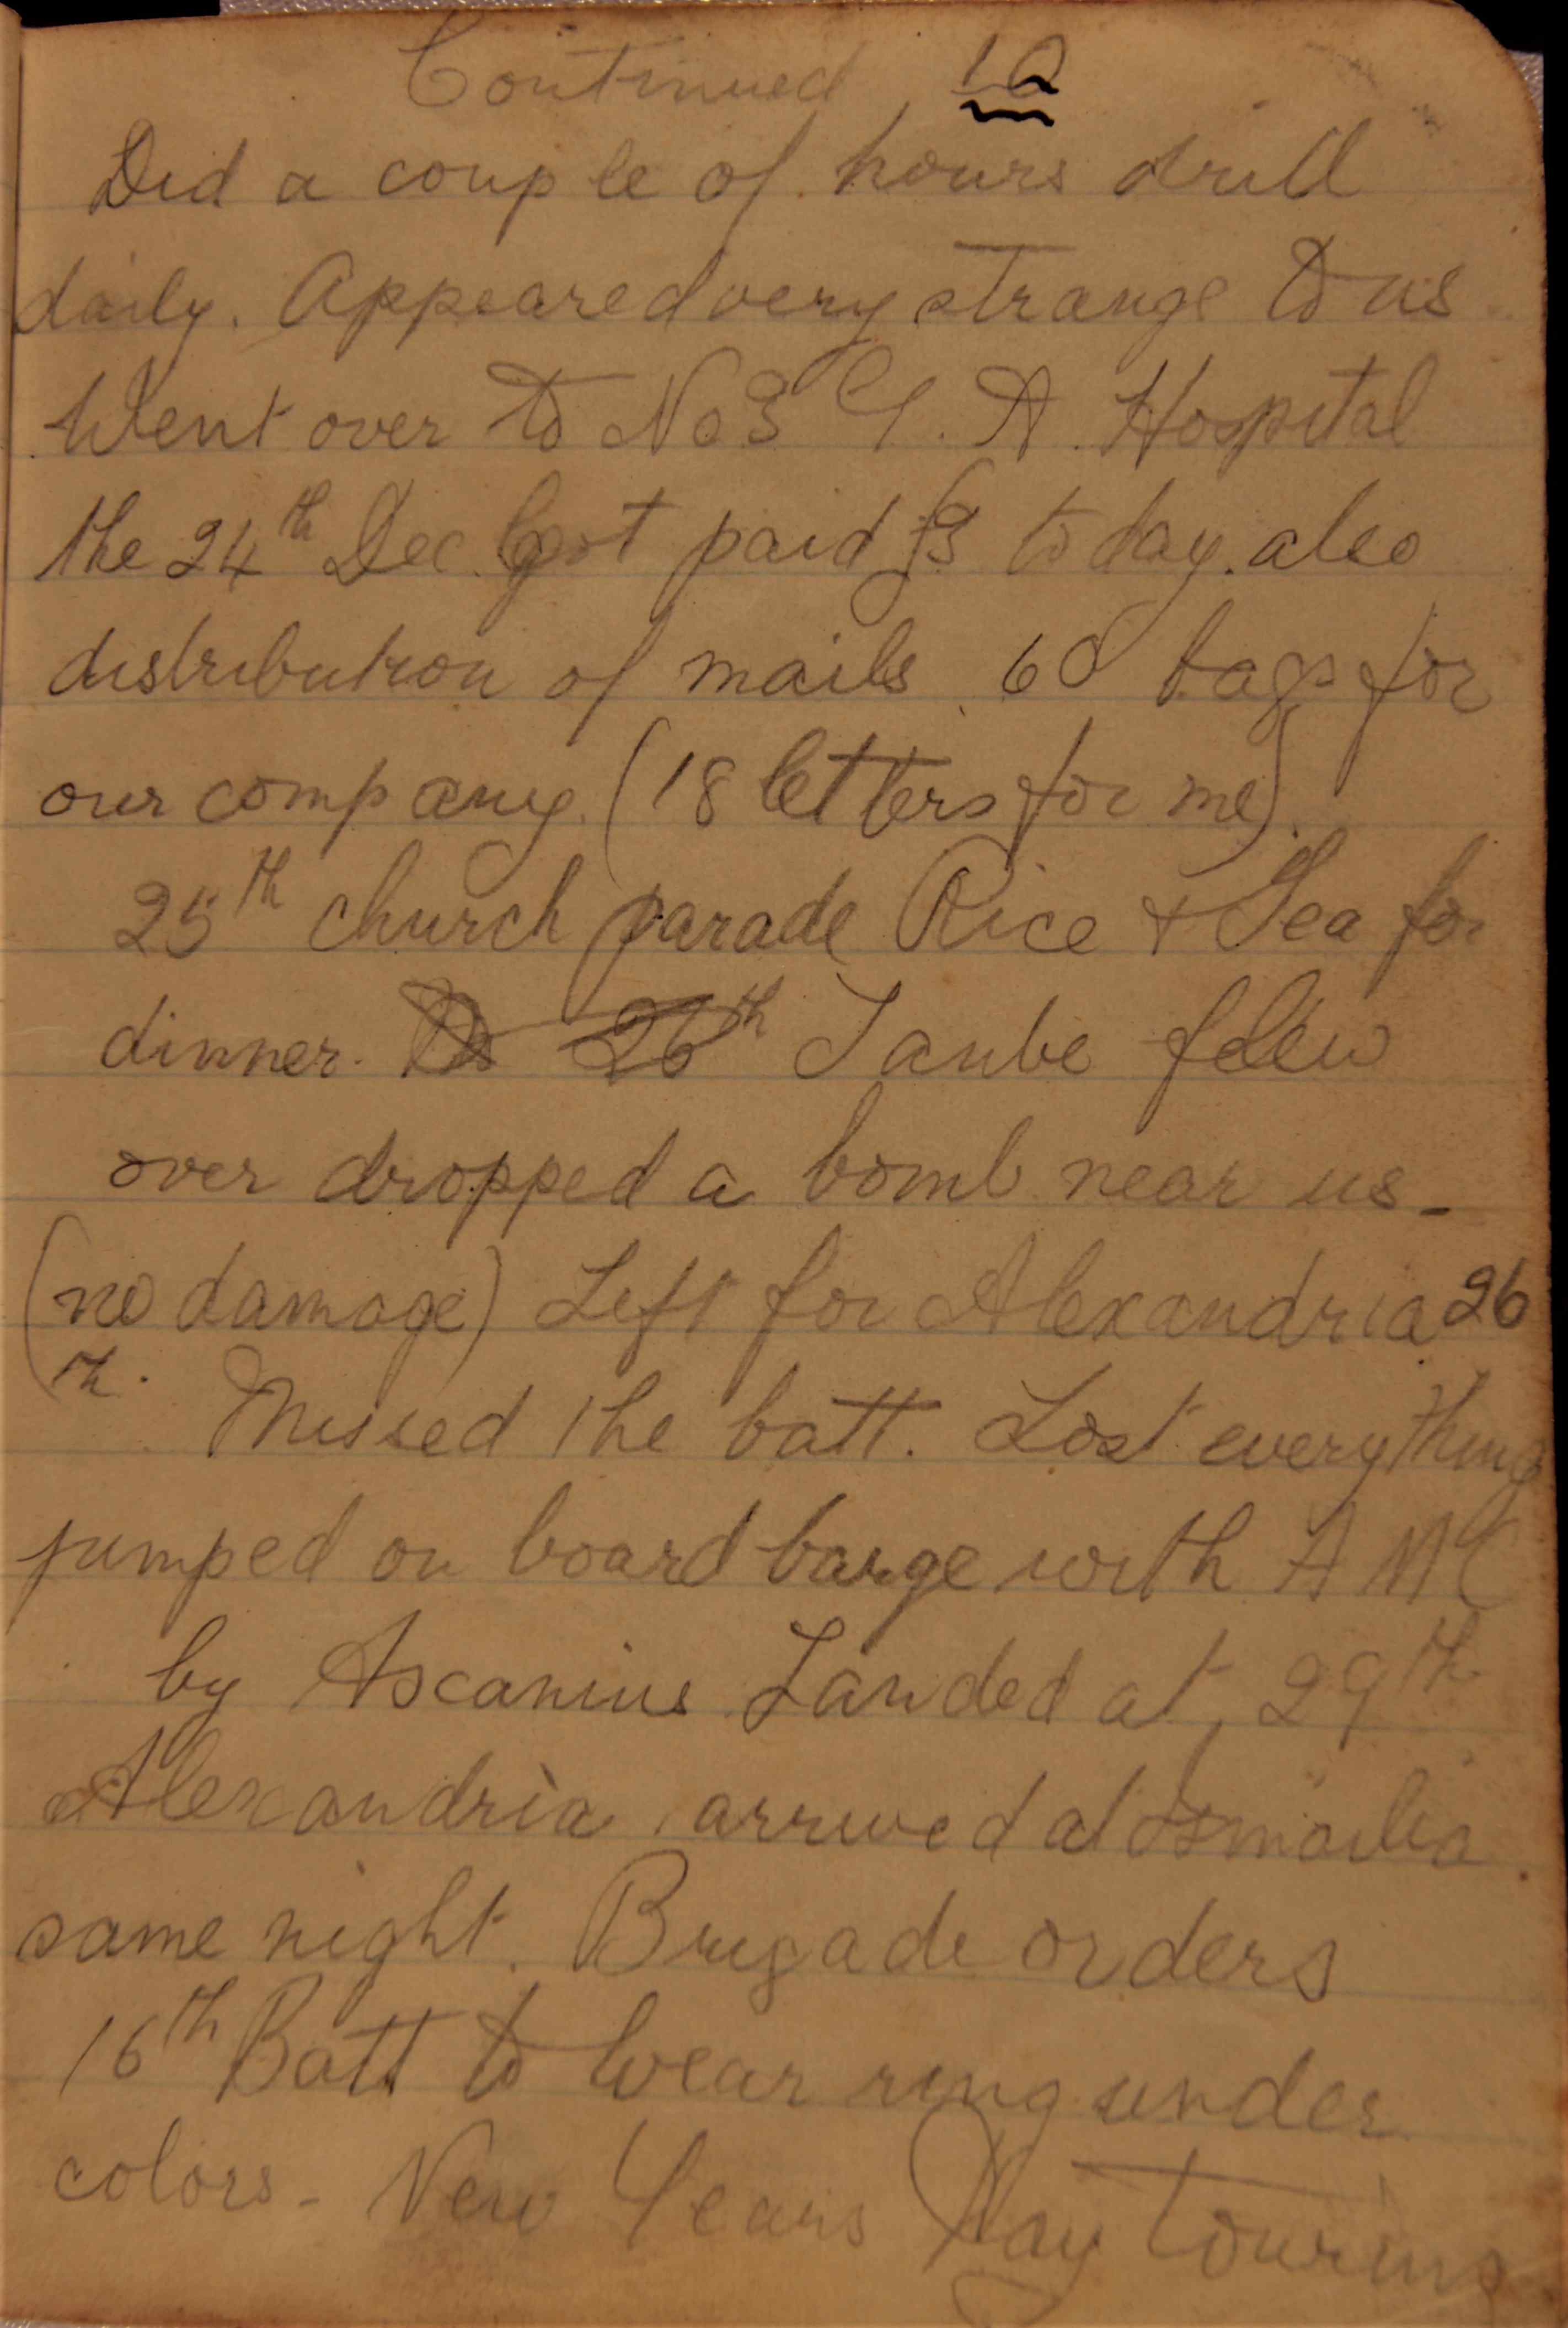 Continued 10
Did a couple of hours drill
daily. Appeared very strange to us
Went over to No 3 G. A. Hospital
the 24th Dec. Got paid £3 today. also
distribution of mails 60 bags for
our company. (18 letters for me).
25th church parade Rice & Tea for
dinner. 26th Taube flew
over dropped a bomb near us -
(no damage) Left for Alexandria 26
th. Missed the batt. Lost everything
jumped on board barge with A M C
by Ascanius Landed at 29th
Alexandria arrived at Ismailia
same night. Brigade orders
16th Batt to wear ring under
colors - New Years Day touring